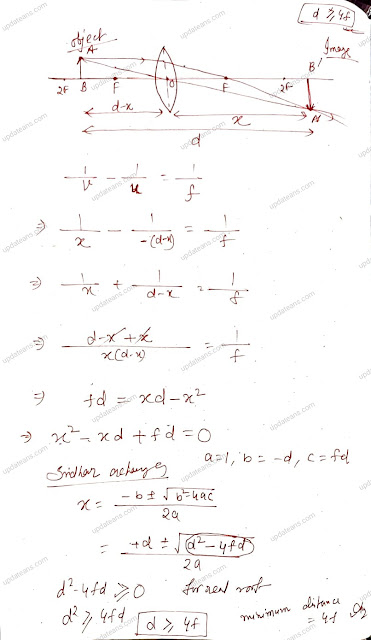 d ≥ 4f
object
Image
A
B'
2F B F O F 2F A'
d-x x
d
1/v - 1/u = 1/f
⇒ 1/x - 1/-(d-x) = 1/f
⇒ 1/x + 1/d-x = 1/f
⇒ d-x+x/x(d-x) = 1/f
⇒ fd = xd-x²
⇒ x² - xd + fd = 0
a=1, b = -d, c = fd
x = -b ± √b²-4ac/2a
= +d ± √d²-4fd/2a
d²-4fd ≥ 0 for real root
d² ≥ 4fd d ≥ 4f minimum distance
= 4f
updateans.com